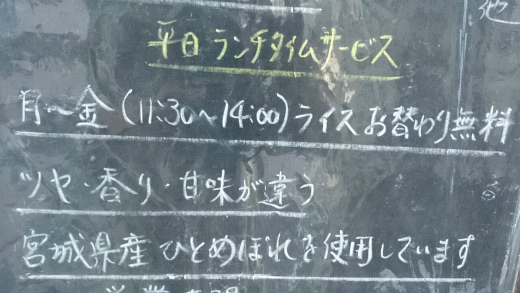 他
平日 ランチタイムサービス
月〜金 (11:30〜14:00) ライスお替わり無料
ツヤ・香り・甘味が違う
宮城県産 ひとめぼれを使用しています